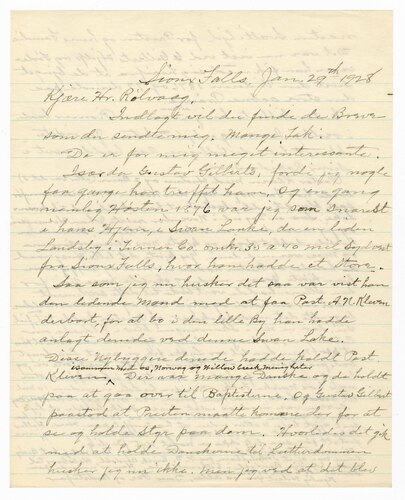 Sioux Falls, Jan. 29th 1928
Kjære Hr. Rölvaag.
Indlagt vil du finde de Breve
som du sendte mig. Mange Tak!
De er for mig meget interessante.
Isærda Gustav Gilberts, fordi jeg nogle
faa gange har truffet ham, og en gang
nemlig Høsten 1876 var jeg som snarest
i hans Hjem, i Swan Lake, da en liden
Landsby i Turner Co. omkr. 35 a 40 mil Sydvest
fra Sioux Falls, hvor han hadde et Store.
Saa som jeg nu husker det saa var vist han
den ledende Mand med at faa Past. A. N. Kleven
derbort, for at bo i den lille By han hadde
anlagt derude ved denne Swan Lake.
Disse Nybyggere derude hadde kaldt Past
Kleven sammen med os, Norway og Willow Creek menigheter
Der var mange Danske og de holdt
paa at gaa over til Baptisterne, og Gustav Gilbert
paastod at Presten maatte komme der for at
se og holde Styr paa dem. Hvorledes det gik
med at holde Danskerne til Lutherdommen
husker jeg nu ikke. Men jeg ved at det blev